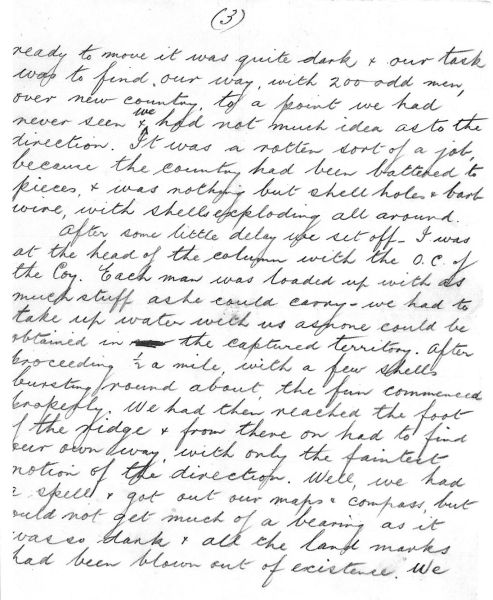 (3)
ready to move it was quite dark & our task
was to find our way, with 200 odd men,
over new country, to a point we had
never seen & we had not much idea as to the
direction. It was a rotten sort of a job,
because the country had been battered to
pieces, & was nothing but shell holes & barb
wire, with shells exploding all around.
After some little delay we set off - I was
at the head of the column with the O.C. of
the Coy. Each man was loaded up with as
much stuff as he could carry - we had to
take up water with us as none could be
obtained in the captured territory. After
proceeding ½ a mile, with a few shells
bursting round about, the fun commenced
properly. We had then reached the foot
f the ridge & from there on had to find
our own way, with only the faintest
notion of the direction. Well, we had
a spell & got out our maps & compass but
ould not get much of a bearing as it
was so dark & all the land marks
had been blown out of existence. We